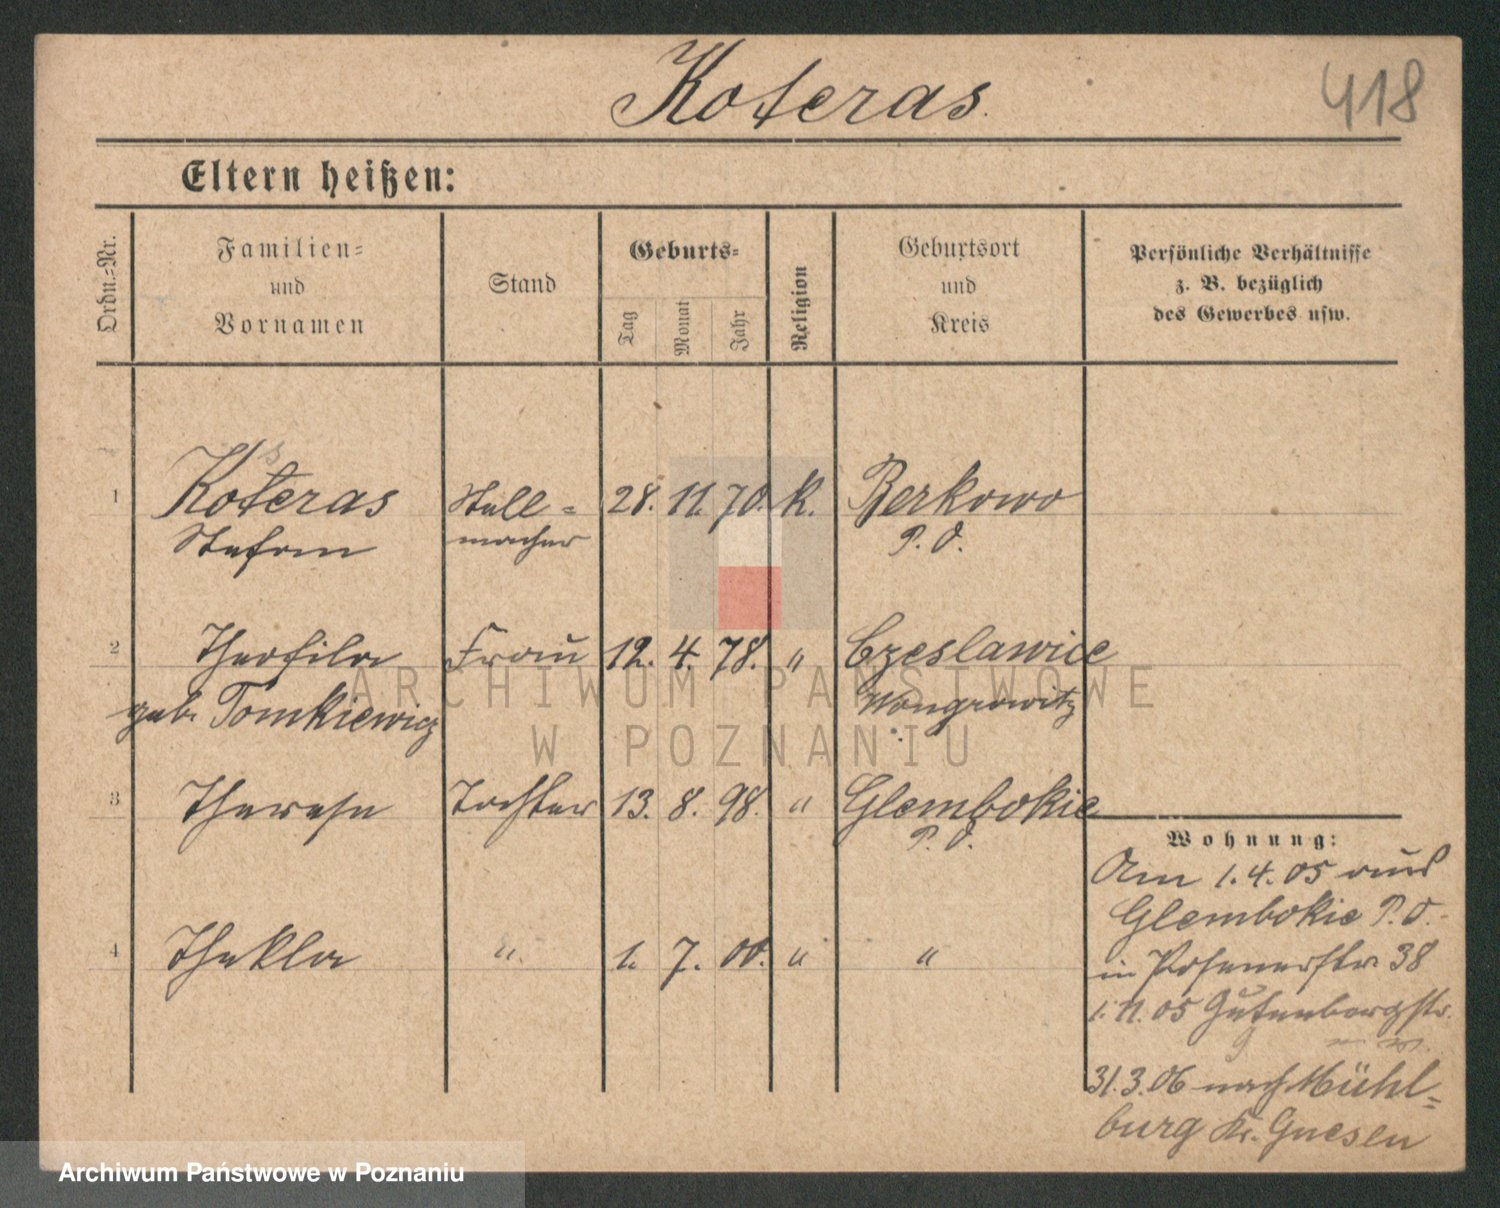 Koteras.
418
Eltern heißen:
Ordn.-Nr.
Familien-
und
Vornamen
Stand
Geburts-
Tag
Monat
Jahr
Religion
Geburtsort
und
Kreis
Persönliche Verhältnisse
z. B. bezüglich
des Gewerbes usw.
1 Koteras Stell= 28. 11. 70. K. Berkowo
Stefan macher P. O.
2 Theofila Frau 12. 4. 78. " Czeslawice
geb. Tomkiewicz Wongrowitz
3 Therese Tochter 13. 8. 98. " Glembokie
P. O.
Wohnung:
Am 1. 4. 05 aus
Glembokie P. O.
4 Thekla " 1. 7. 00. " "
in Posenerstr. 38
1. 11. 05 Gutenbergstr.
31. 3. 06 nach Mühl=
burg Kr. Gnesen
ARCHIWUM PAŃSTWOWE
W POZNANIU
Archiwum Państwowe w Poznaniu